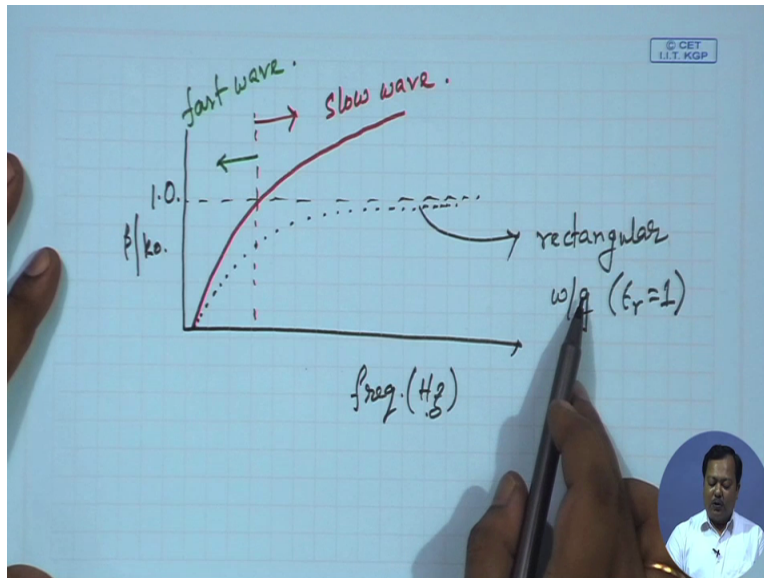 © CET
I.I.T. KGP
fast wave.
slow wave.
1.0.
β/k0.
rectangular
w/g (εr=1)
freq. (Hz)